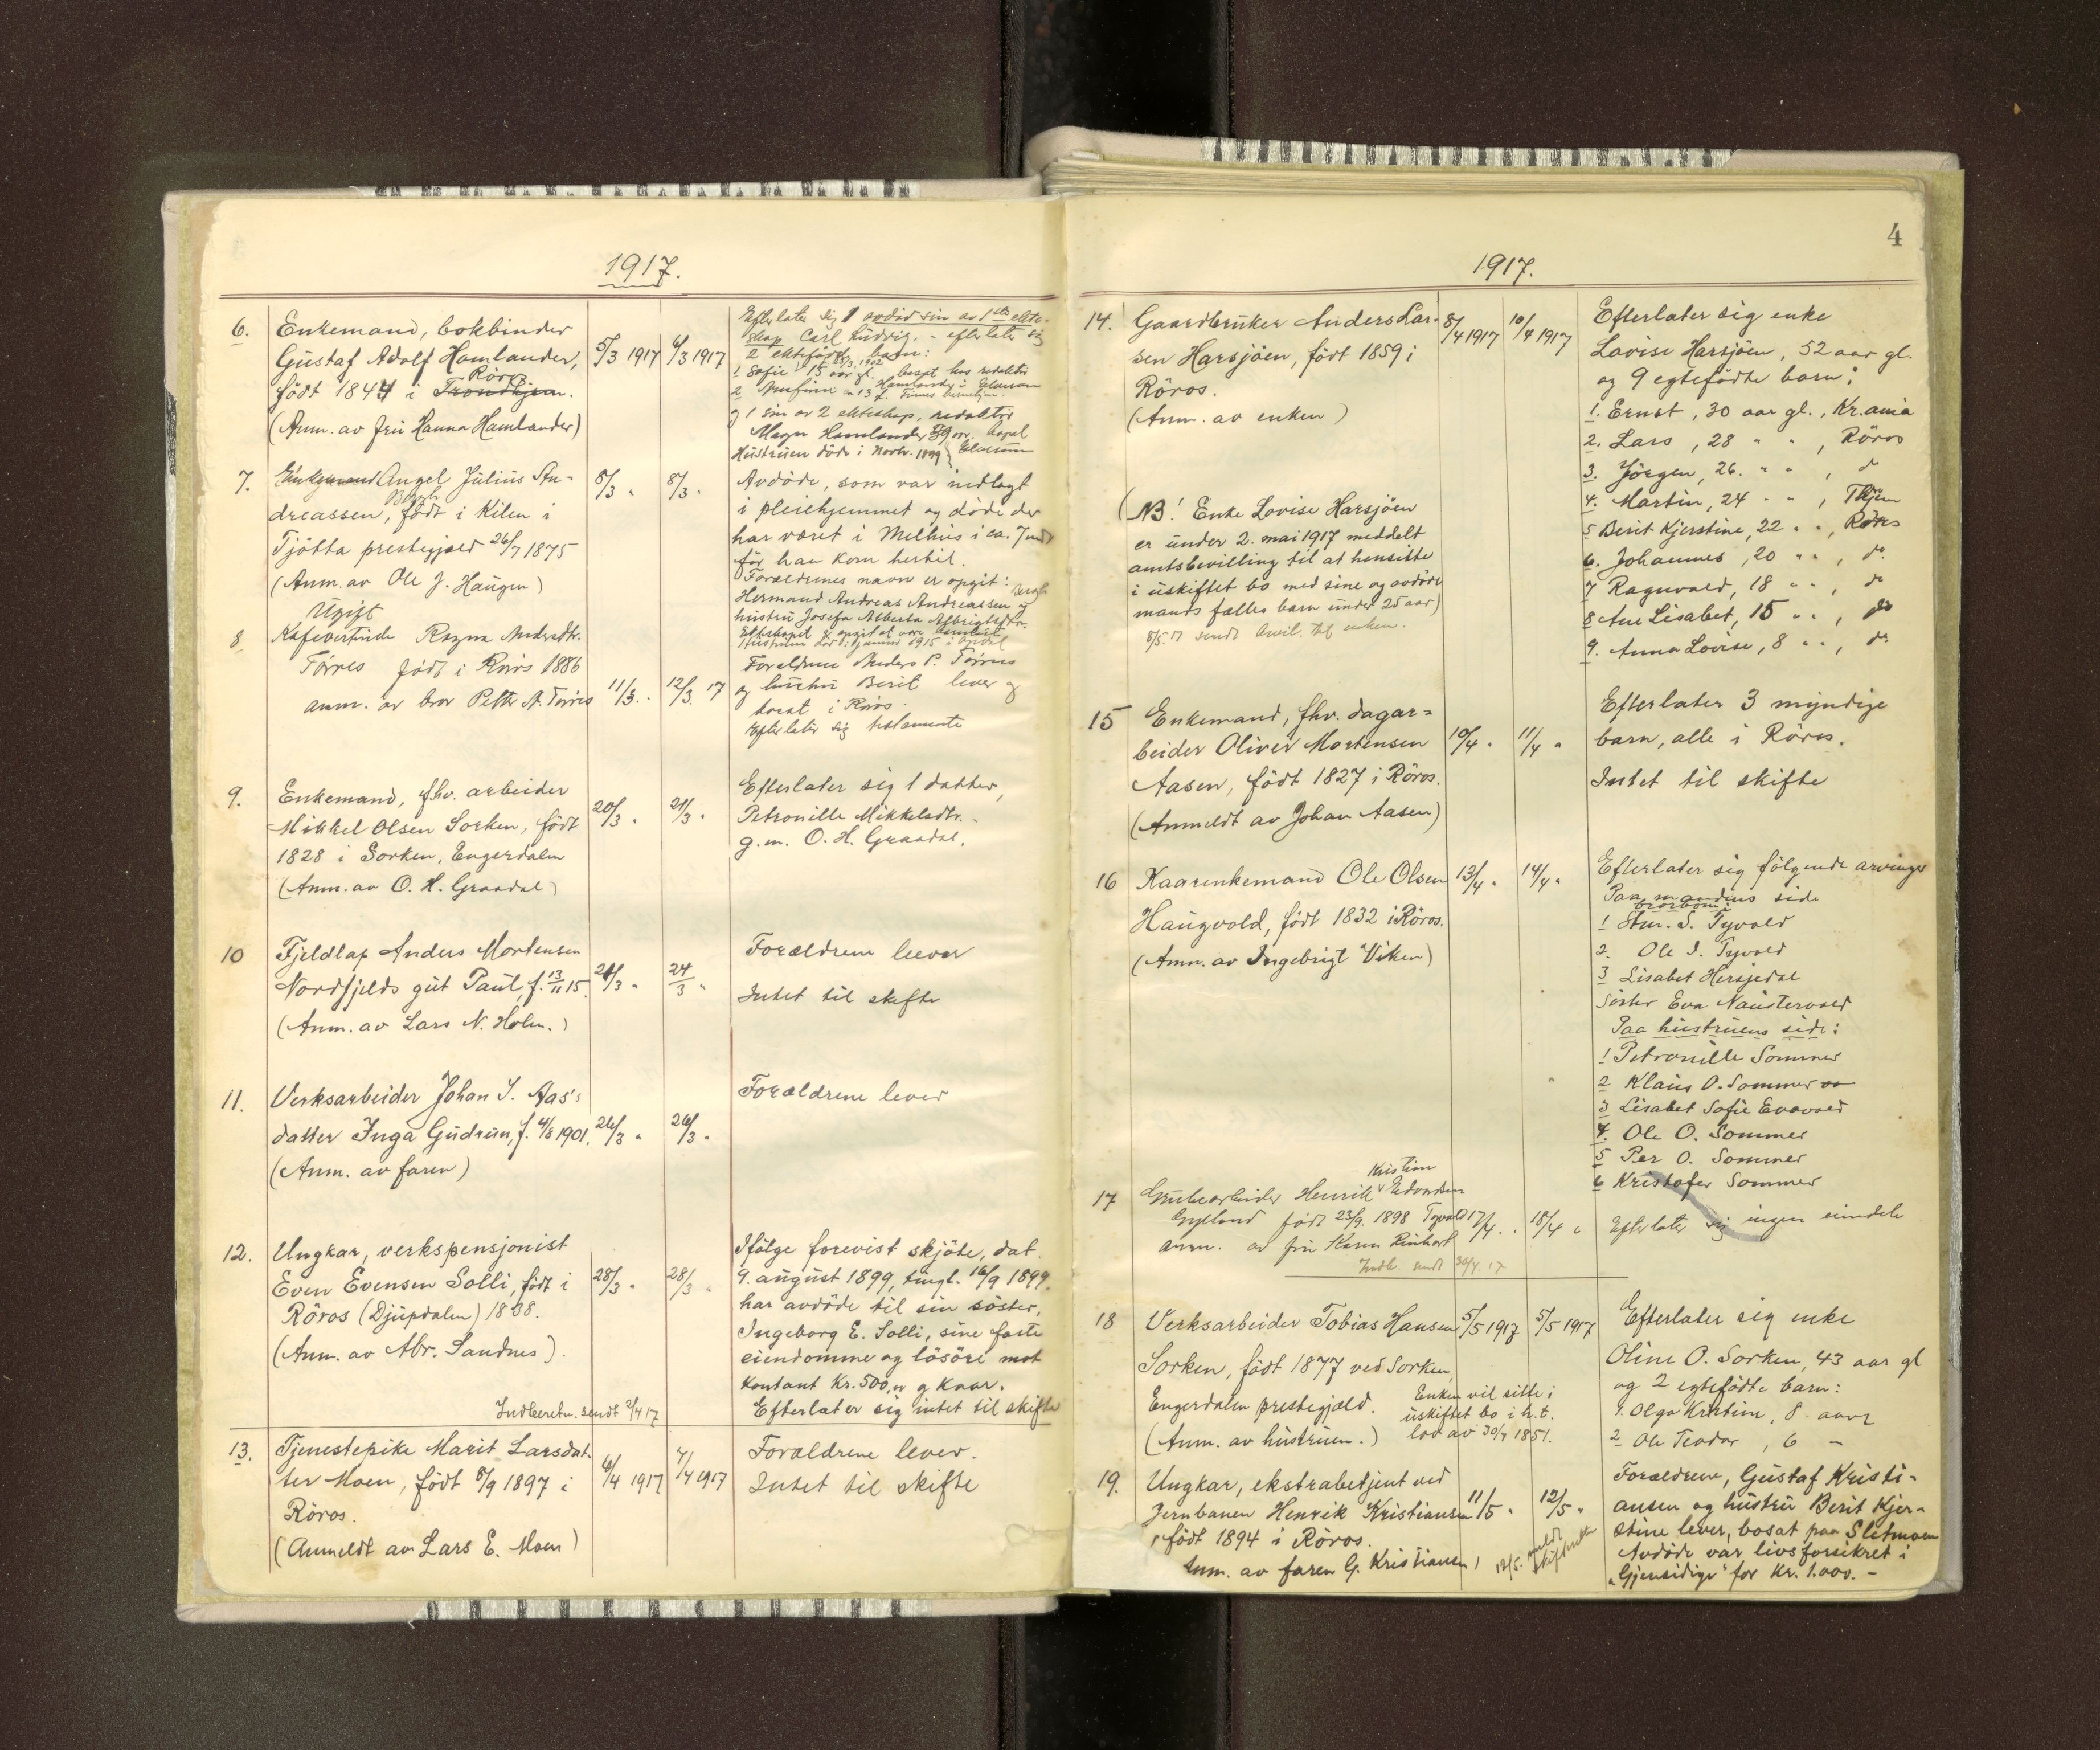 1917.
6. Enkemand, bokbinder
Gustaf Adolf Hamlander, 5/3 1917 6/3 1917
Röros
født 1844 i Trondhjem.
(Anm. av fru Hanna Hamlander)
Efterlater sig 1 avdød søn av 1ste ekte-
skap Carl Ludvig, - efterlater sig
2 ektefødte barn:
1 Sofie 15 aar gl. bosat hos redaktør
2 13
og 1 søn av 2 ekteskap, redaktør
Magn Hamlander 39 aar.
Hustruen døde i Novbr. 1899
7. Enkemand Angel Julius An- 8/3 " 8/3 "
Bergh
dreassen, født i Kilen i
Tjøtta prestegjæld 26/7 1875
(Anm. av Ole J. Haugen)
Ugift
Avdøde, som var indlagt
i pleiehjemmet og døde der
har været i Melhus i ca. 7 mdr
før han kom hertil.
Forældrenes navn er opgit:
Hermand Andreas Andreassen Bergh og
hustru Josefa Alberta Albrigtsdtr.
Ekteskapet er opgit at være barnløst
8 Kafevertinde Ragna Andersdtr.
Tørres født i Røros 1886
anm. av bror Petter A. Tørres 11/3. 12/3. 17
Forældrene Anders P. Tørres
og hustru Berit lever og
bosat i Røros.
Efterlater sig testamente
9. Enkemand, fhv. arbeider
Mikkel Olsen Sorken, født 20/3 " 21/3 "
1828 i Sorken, Engerdalen
(Anm. av O. H. Graadal)
Efterlater sig 1 datter,
Petronille Mikkelsdtr.
g. m. O. H. Graadal.
10 Fjeldlap Anders Mortensen
Nordfjelds gut Paul, f. 13/11 15. 21/3 " 24/3 "
(Anm. av Lars N. Holm.)
Forældrene lever
Intet til skifte
11. Verksarbeider Johan I. Aas's
datter Inga Gudrun, f. 4/8 1901. 26/3 " 26/3 "
(Anm. av faren)
Forældrene lever
12. Ungkar, verkspensjonist
Even Evensen Solli, født i 28/3 " 28/3 "
Röros (Djupdalen) 1838.
(Anm. av Abr. Sandnes).
Ifølge forevist skjöte, dat.
9. august 1899, tingl. 16/9 1899.
har avdöde til sin söster,
Ingeborg E. Solli, sine faste
eiendomme og lösöre mot
kontant Kr. 500,00 og kaar.
Efterlater sig intet til skifte
Indberetn. sendt 2/4 17
13. Tjenestepike Marit Larsdat-
ter Moen, født 8/9 1897 i 6/4 1917 7/4 1917
Röros.
(Anmeldt av Lars E. Moen)
Forældrene lever.
Intet til skifte
4
1917.
14. Gaardbruker Anders Lar- 8/4 1917 10/4 1917
sen Harsjöen, født 1859 i
Röros.
(Anm. av enken)
(NB! Enke Lovise Harsjöen
er under 2. mai 1917 meddelt
amtsbevilling til at hensitte
i uskiftet bo med sine og avdøde
mands fælles barn under 25 aar)
8/5.17 sendt bevil. til enken.
Efterlater sig enke
Lovise Harsjöen, 52 aar gl.
og 9 egtefödte barn:
1. Ernst, 30 aar gl., Kr.ania
2. Lars, 28 " " , Röros
3. Jörgen, 26. " " , do
4. Martin, 24 " " , Thjem
5 Berit Kjerstine, 22 " " , Röros
6. Johannes, 20 " " , do.
7 Ragnvald, 18 " " , do
8 Ane Lisabet, 15 " " , do
9. Anna Lovise, 8 " " , do.
15 Enkemand, fhv. dagar-
beider Oliver Mortensen 10/4 " 11/4 "
Aasen, født 1827 i Röros.
(Anmeldt av Johan Aasen)
Efterlater 3 myndige
barn, alle i Röros.
Intet til skifte
16 Kaarenkemand Ole Olsen 13/4 " 14/4 "
Haugvold, født 1832 i Röros.
(Anm. av Ingebrigt Viken)
Efterlater sig følgende arvinger
Paa mandens side
brorbørn
1 Stur. S. Tyvold
2. Ole I. Tyvold
3 Lisabet Hersjedal
Søster Eva Naustervold
Paa hustruens side:
1 Petronille Sommer
2 Klaus O. Sommer
3 Lisabet Sofie Evavold
4. Ole O. Sommer
5 Per O. Sommer
6 Kristofer Sommer
17 Grubearbeider Henrik Kristian Edvardsen
født 23/9. 1898 Tyvold 17/4. " 18/4 "
anm. av fru Karen Reinhart
Indb. sendt 30/4 17
Efterlater sig ingen eiendele
18 Verksarbeider Tobias Hansen 5/5 1917 5/5 1917
Sorken, født 1877 ved Sorken,
Engerdalen prestegjæld.
(Anm. av hustruen.)
Enken vil sitte i
uskiftet bo i h.t.
lov av 30/7 1851.
Efterlater sig enke
Oline O. Sorken, 43 aar gl
og 2 egtefödte barn:
1. Olga Kristine, 8 aar
2 Ole Teodor, 6 -
19. Ungkar, ekstrabetjent ved
Jernbanen Henrik Kristiansen 11/5 " 12/5 "
født 1894 i Röros.
Anm. av faren G. Kristiansen)
12/5. meldt skifteretten
Forældrene, Gustaf Kristi-
ansen og hustru Berit Kjer-
stine lever, bosat paa Sletmoen
Avdøde var livsforsikret i
"Gjensidige" for Kr. 1.000. -